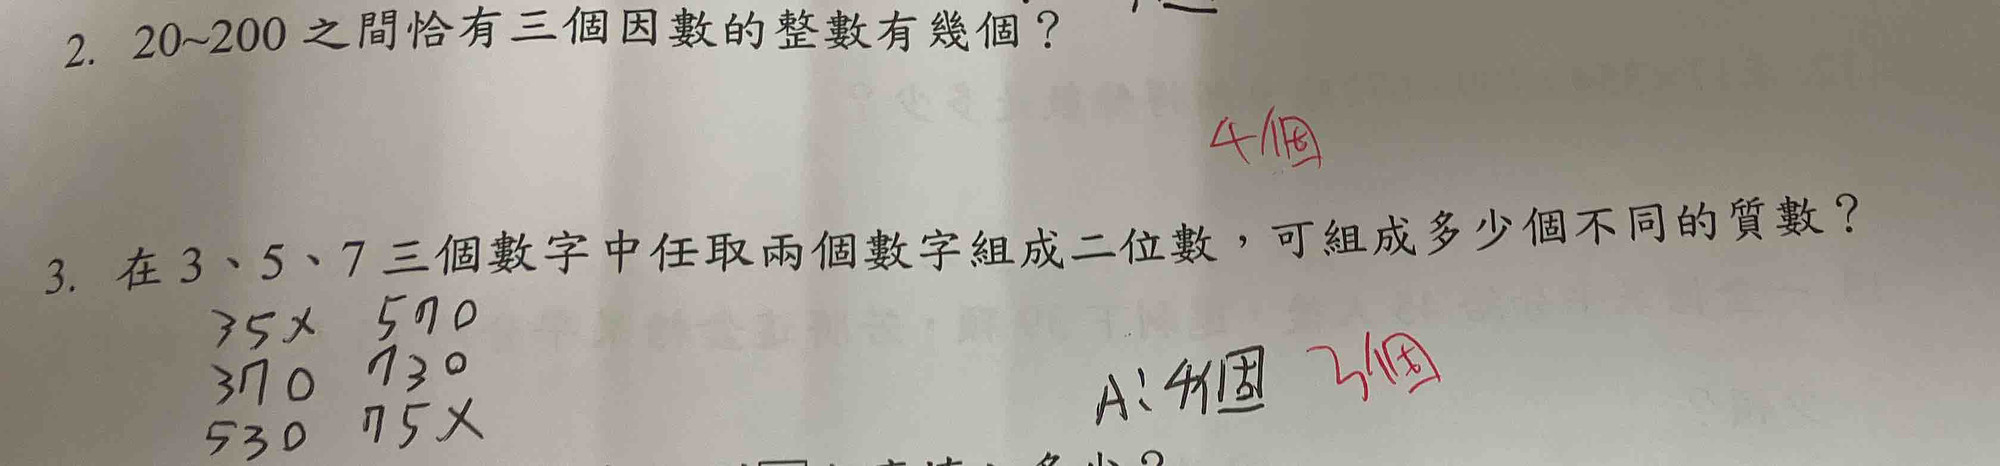 2. 20~200 之間恰有三個因數的整數有幾個？
4個
3. 在 3、5、7 三個數字中任取兩個數字組成二位數，可組成多少個不同的質數？
35X 57O
37O 73O
53O 75X
A: 4個 3個